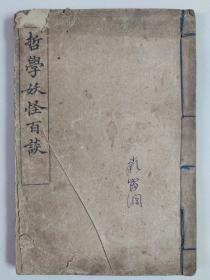 哲學妖怪百談